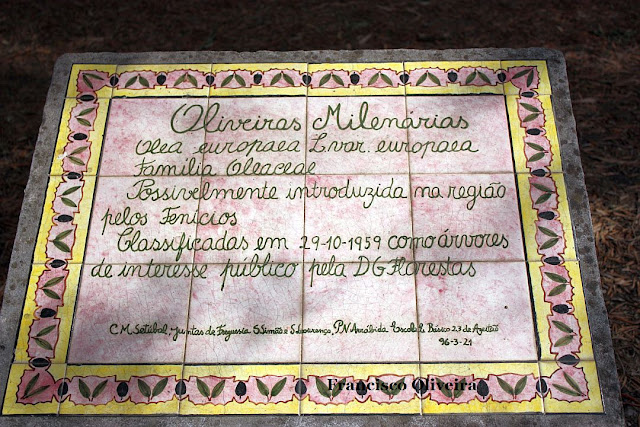 Oliveiras Milenárias
Olea europaea L. var. europaea
Família Oleaceae
Possivelmente introduzida na região
pelos Fenícios
Classificadas em 29-10-1959 como árvores
de interesse público pela DG Florestas
C.M. Setúbal, Juntas de Freguesia S. Simão e S. Lourenço, P.N. Arrábida Escola Básica 2,3 de Azeitão
96-3-21
Francisco Oliveira